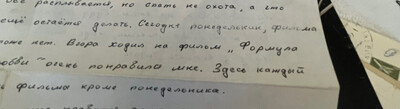 все расплывается, но спать не охота, а что
ещё остаётся делать. Сегодня понедельник, фильма
тоже нет. Вчера ходил на фильм „Формула
любви" очень понравился мне. Здесь каждый
фильма кроме понедельника.